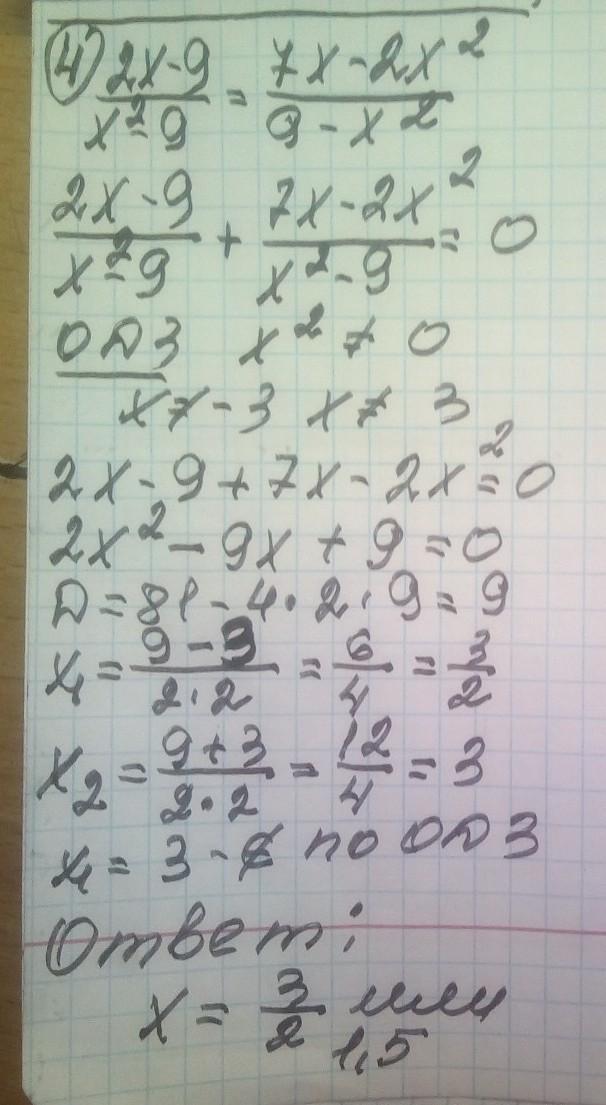 ④ (2x-9)/(x²-9) = (7x-2x²)/(9-x²)
(2x-9)/(x²-9) + (7x-2x²)/(x²-9) = 0
ОДЗ x² ≠ 0
x ≠ -3 x ≠ 3
2x-9+7x-2x²=0
2x²-9x+9=0
D=81-4·2·9=9
x₁ = (9-3)/(2·2) = 6/4 = 3/2
x₂ = (9+3)/(2·2) = 12/4 = 3
x₁ = 3 - ∉ по ОДЗ
Ответ:
x = 3/2 или
1,5